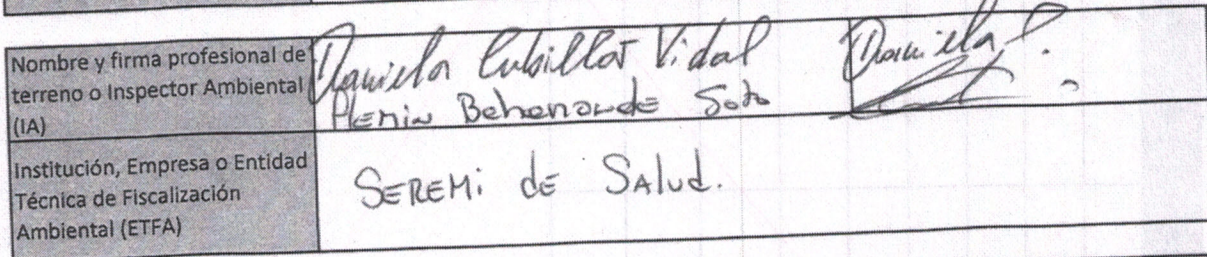 Nombre y firma profesional de
terreno o Inspector Ambiental
(IA)
Daniela Cubillos Vidal Daniela
Soto
Institución, Empresa o Entidad
Técnica de Fiscalización
Ambiental (ETFA)
SEREMi dE SAlud.